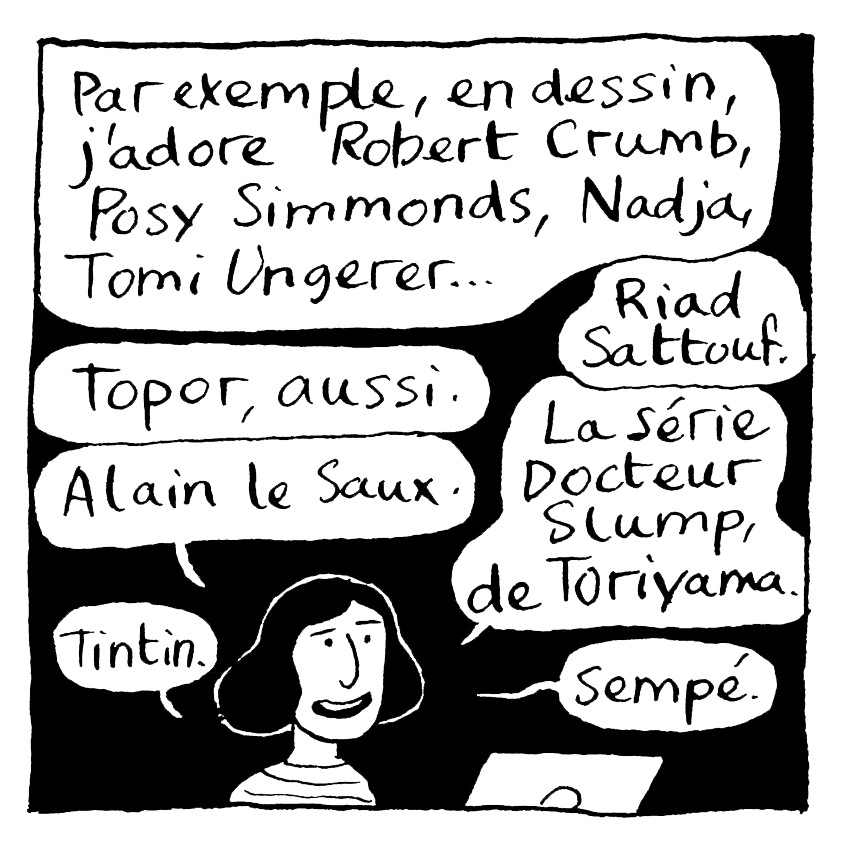 Par exemple, en dessin,
j'adore Robert Crumb,
Posy Simmonds, Nadja,
Tomi Ungerer...
Riad
Sattouf.
Topor, aussi.
Alain le Saux.
La série
Docteur
Slump,
de Toriyama.
Tintin.
Sempé.